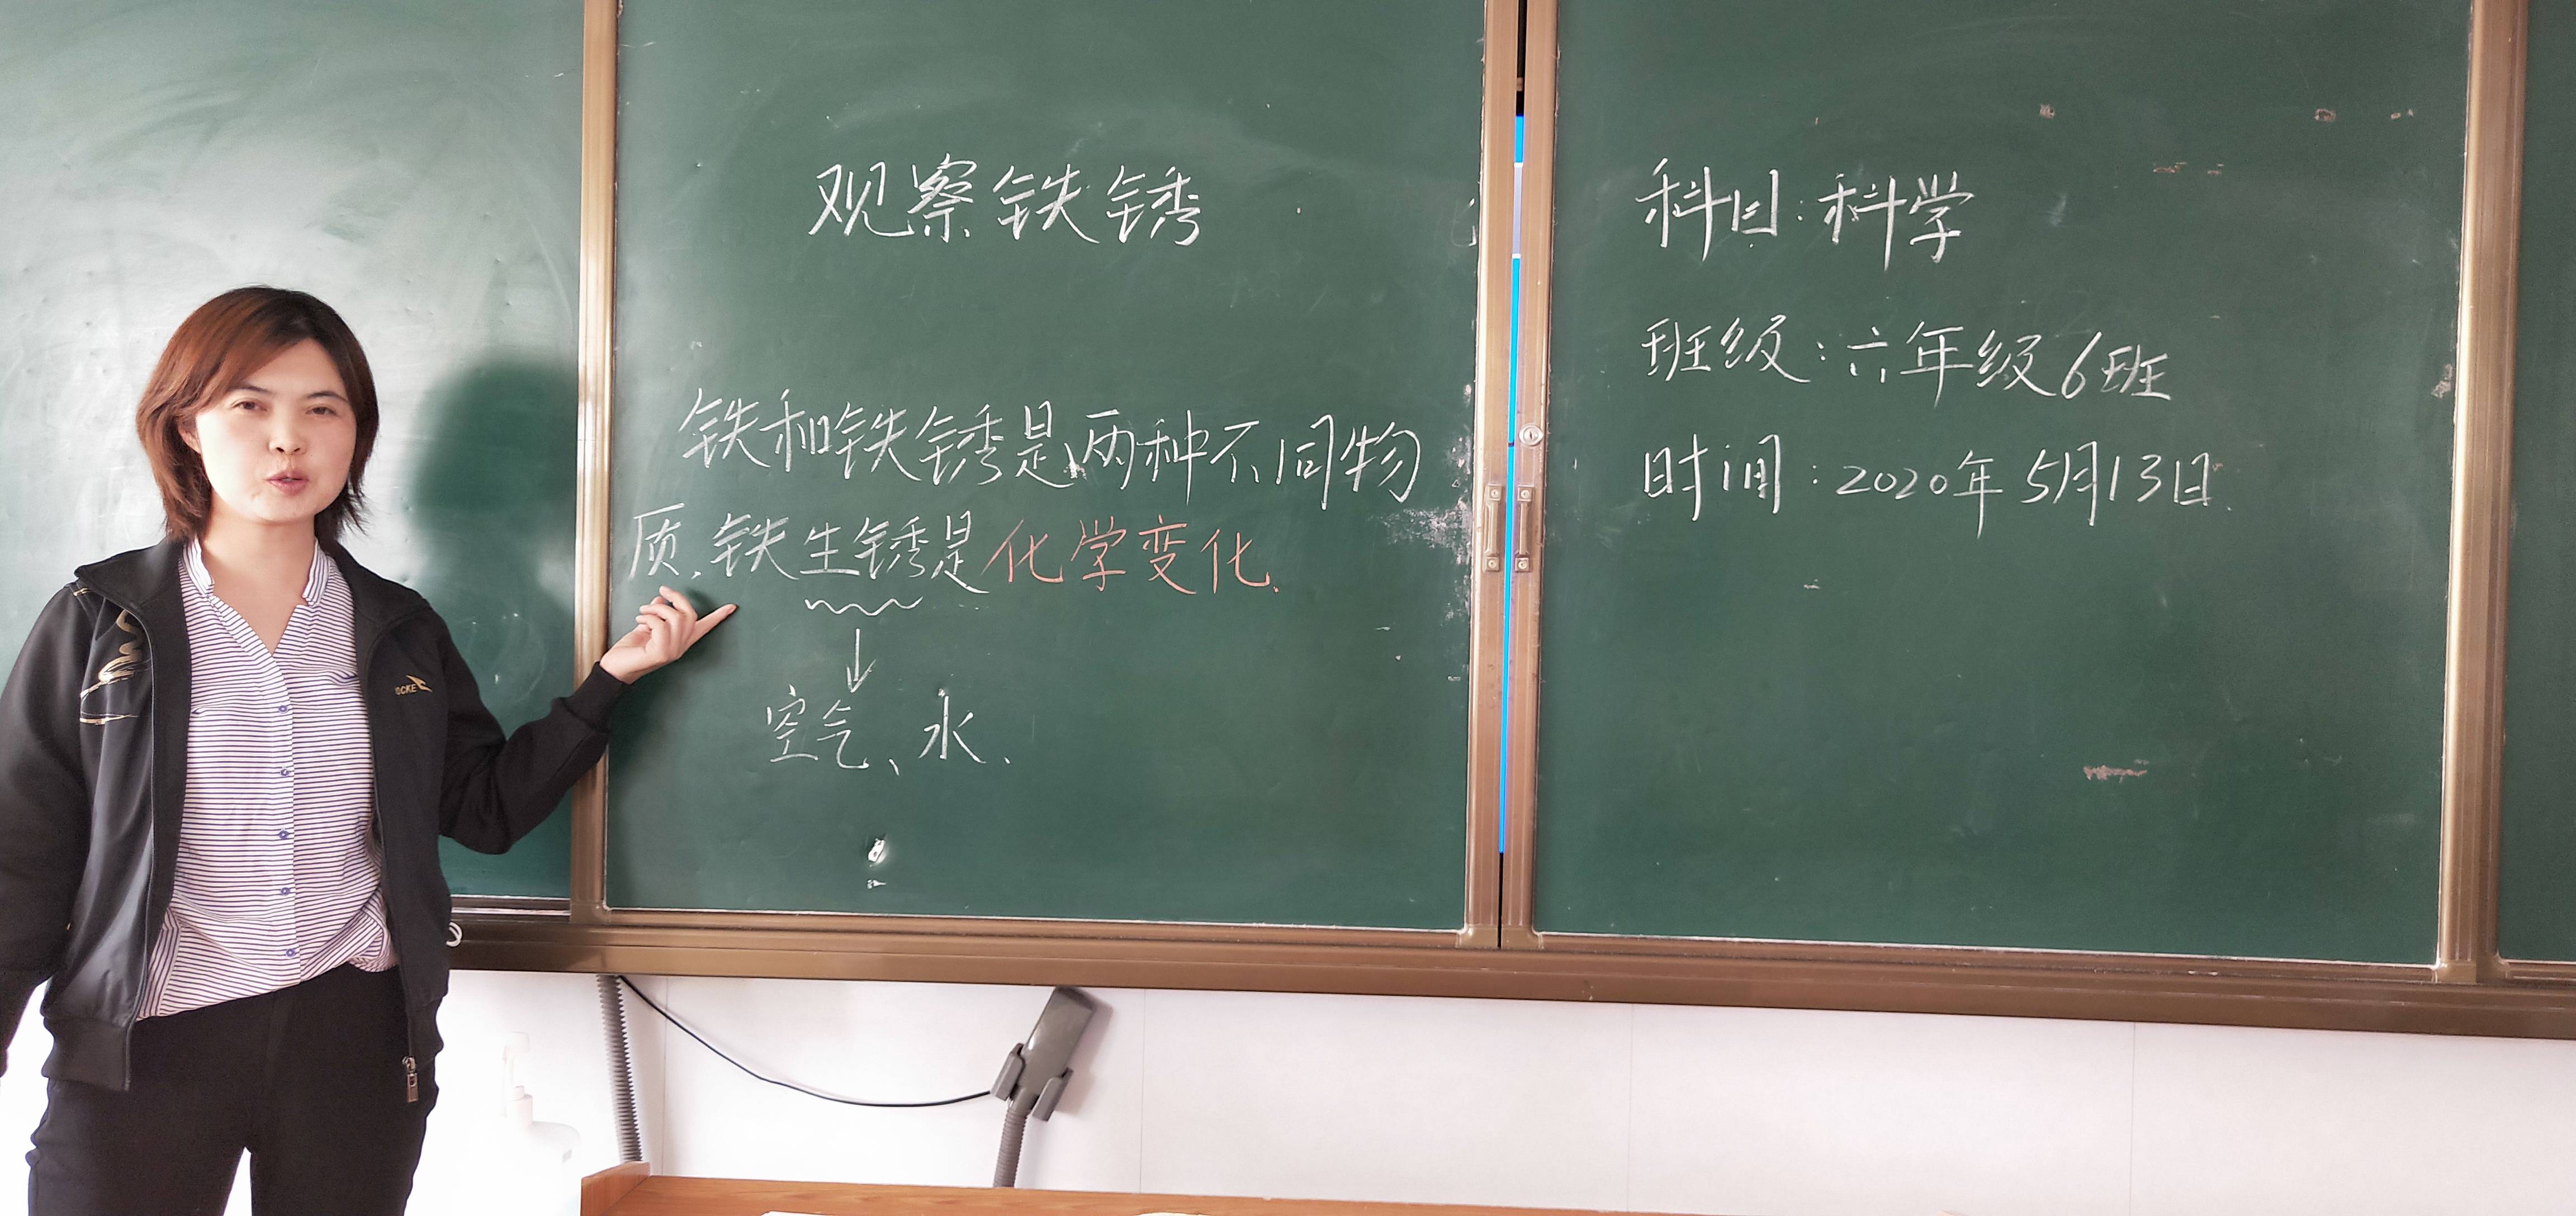 观察铁锈
铁和铁锈是两种不同物
质.铁生锈是化学变化.
空气、水.
科目:科学
班级:六年级6班
时间:2020年5月13日.